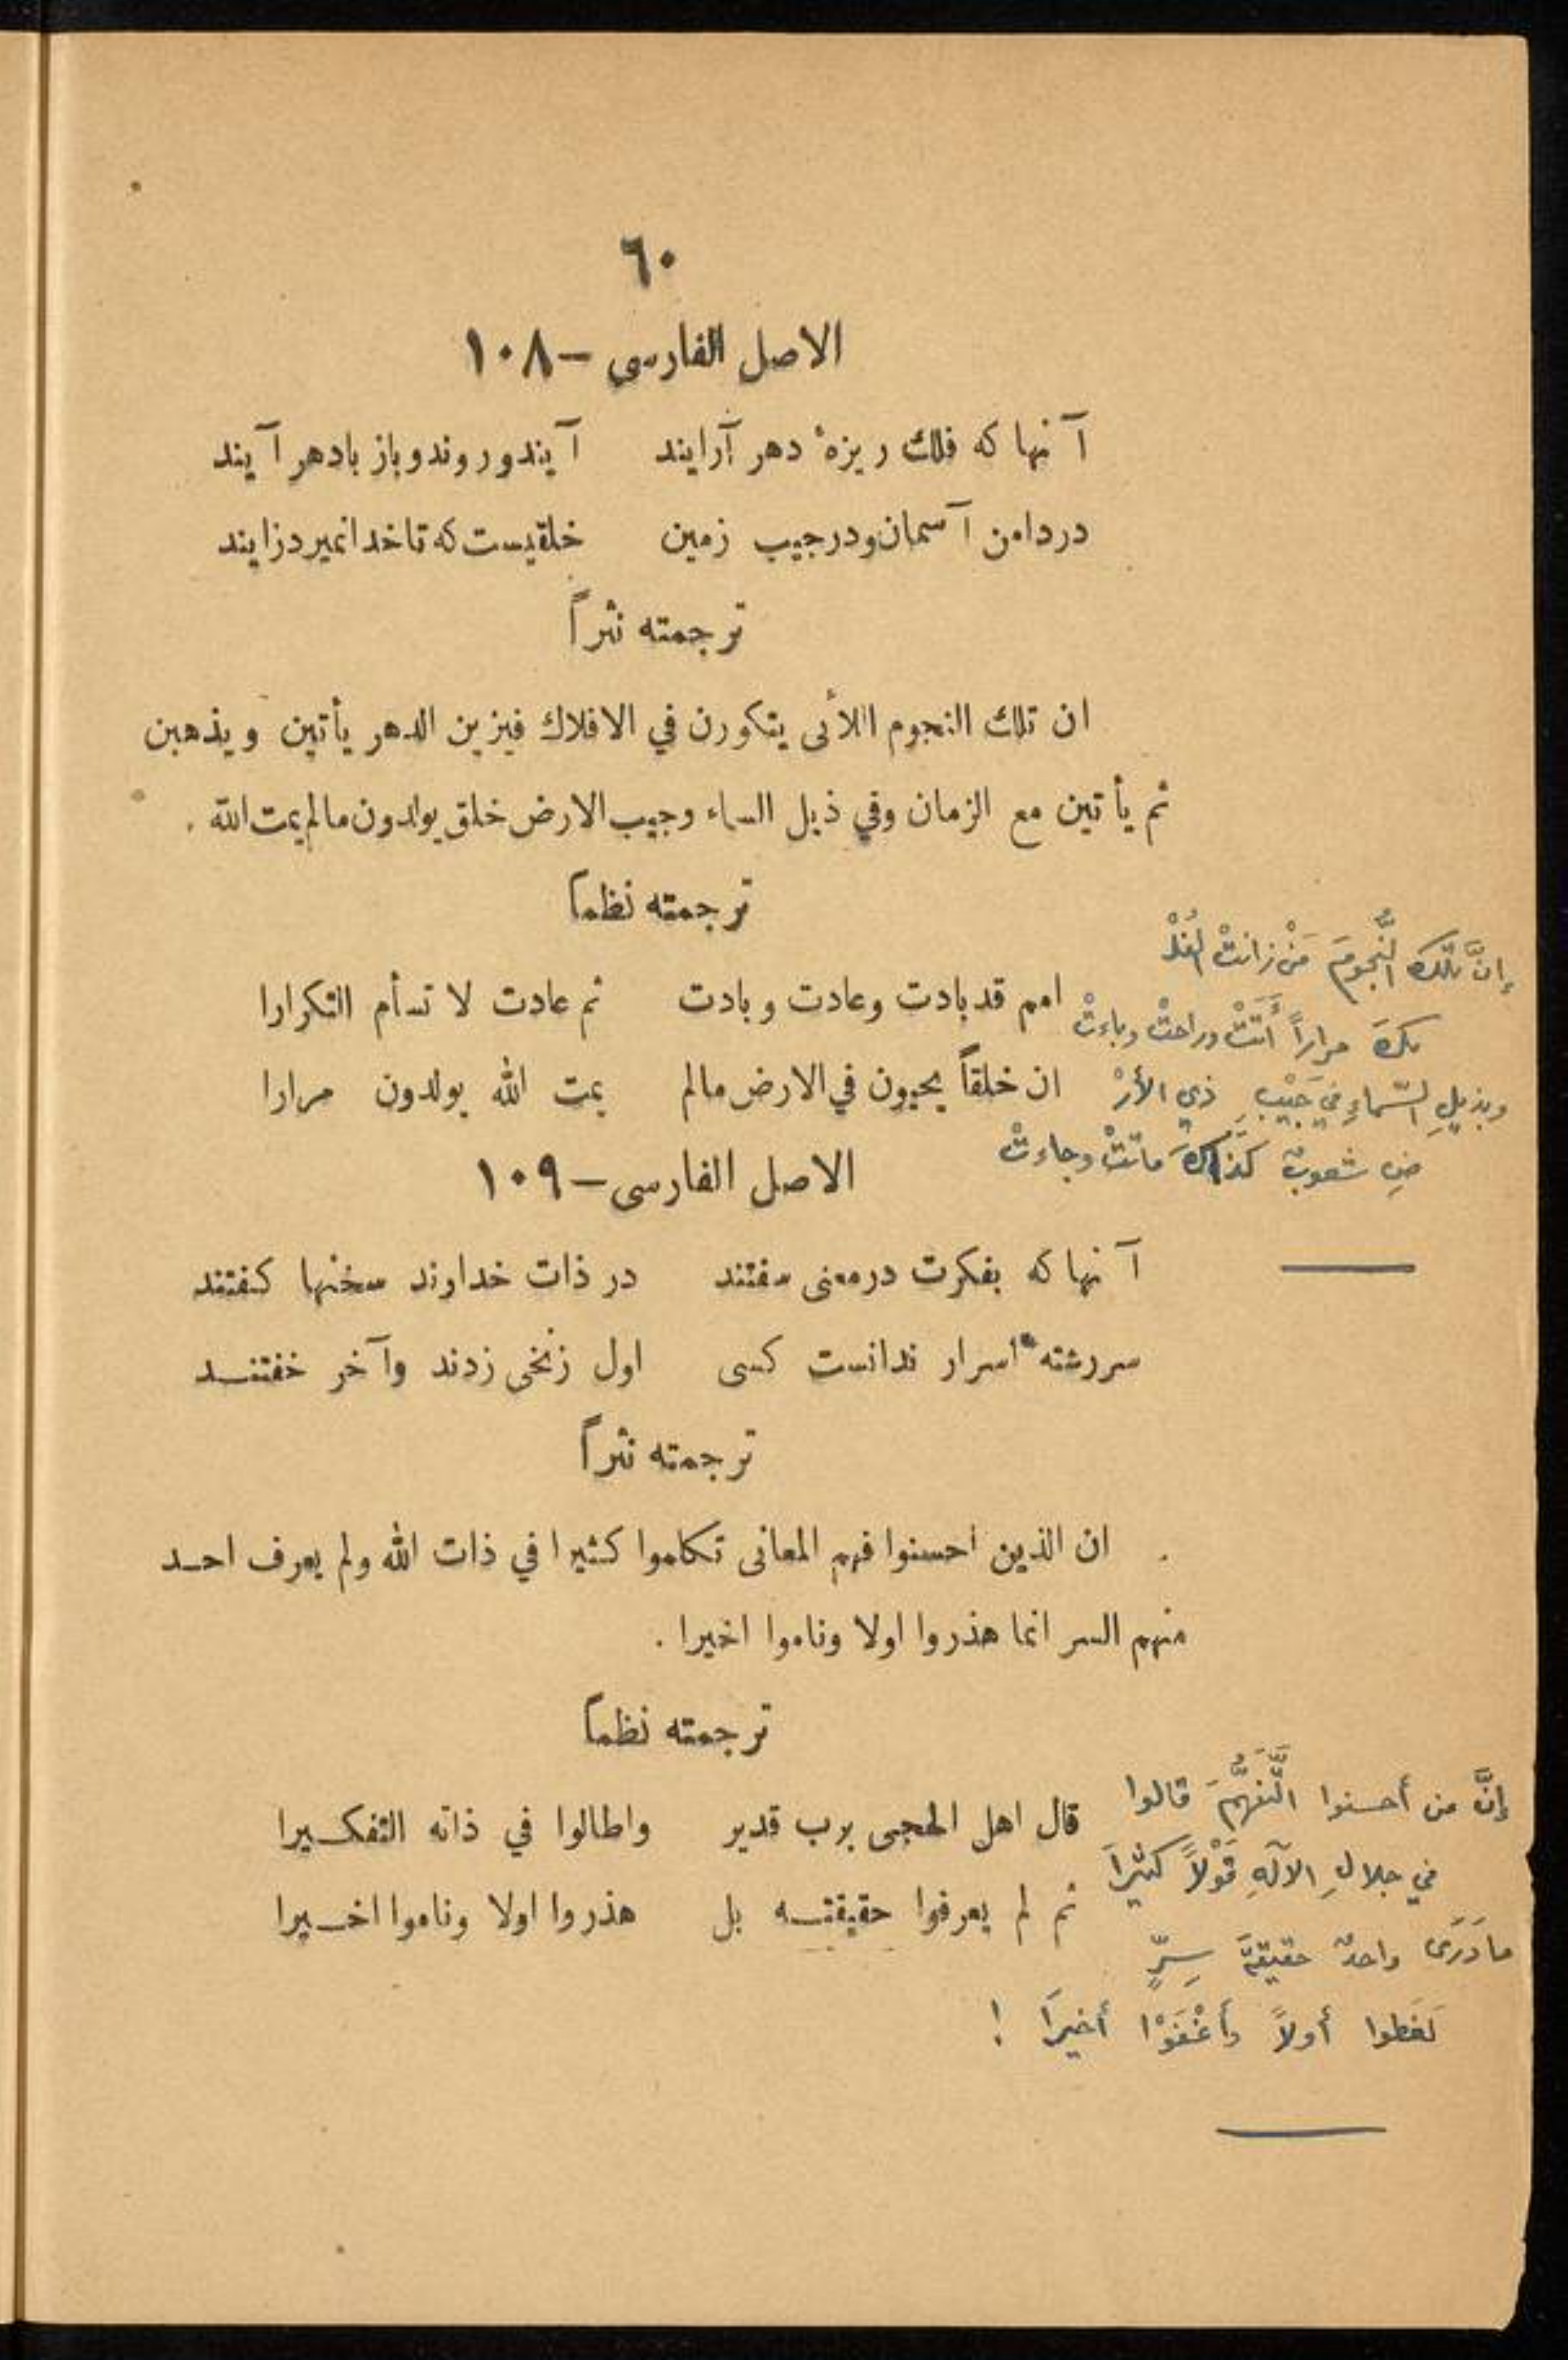 ٦٠
الاصل الفارسى — ١٠٨
آنها كه فلك ريزهٔ دهر آرايند    آيند و روند و باز بادهر آيند
در دامن آسمان و در جيب زمين    خلقيست كه تا خدا نميرد زايند
ترجمته نثراً
ان تلك النجوم اللأى يتكورن في الافلاك فيزين الدهر يأتين ويذهبن
ثم يأتين مع الزمان وفي ذيل السماء وجيب الارض خلق يولدون مالم يمت الله .
ترجمته نظماً
امم قد بادت وعادت وبادت    ثم عادت لا تسأم التكرارا
ان خلقاً يحيون في الارض مالم    يمت الله يولدون مرارا
إنَّ تلكَ النُّجومَ مَنْ زانتْ الفُلْـ
ـكَ مراراً أَتَتْ وراحتْ وباءتْ
وبذيلِ السّماءِ في جَيْبِ ذي الأرْ
ضِ شعوبٌ كذاكَ ماتتْ وجاءتْ
الاصل الفارسى — ١٠٩
آنها كه بفكرت در معنى سفتند    در ذات خداوند سخنها كفتند
سر رشتهٔ اسرار ندانست كسى    اول زنخى زدند وآخر خفتنــد
ترجمته نثراً
ان الذين احسنوا فهم المعانى تكلموا كثيرا في ذات الله ولم يعرف احــد
منهم السر انما هذروا اولا وناموا اخيرا .
ترجمته نظماً
قال اهل الحجى برب قدير    واطالوا في ذاته التفكــيرا
ثم لم يعرفوا حقيقتــه بل    هذروا اولا وناموا اخــيرا
إنَّ من أحسنوا التَّفهُّمَ قالوا
في جلالِ الآلهِ قَوْلاً كثيراً
ما دَرَى واحدٌ حقيقةَ سِرٍّ
لَغَطوا أولاً وأَغْفَوْا أخيراً !